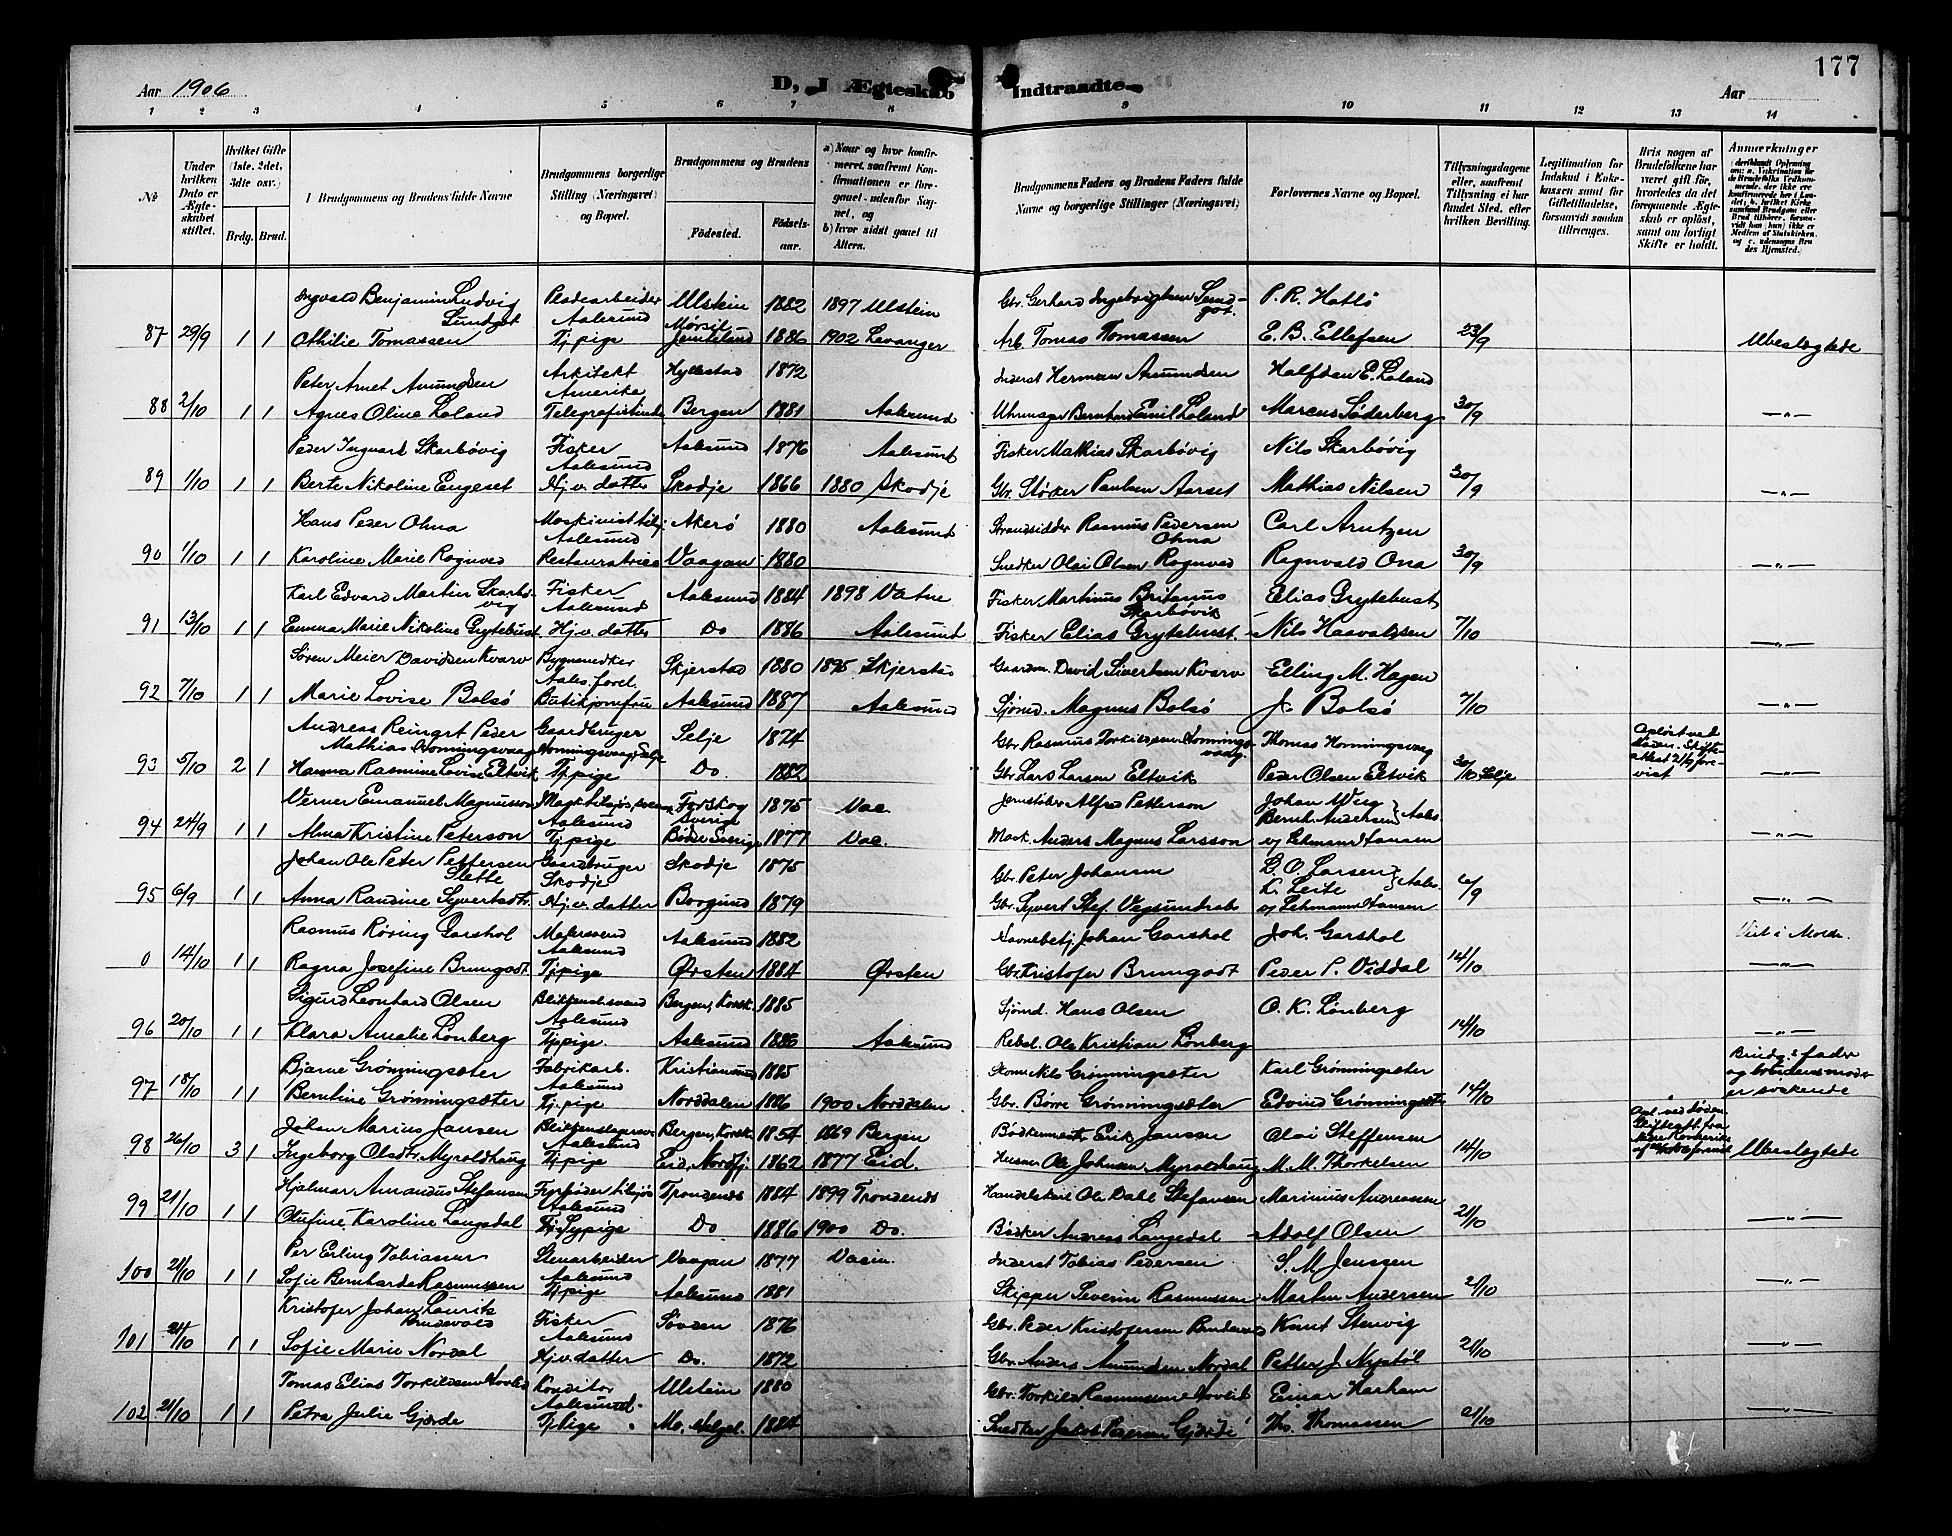 177
Aar 1906
D, I Ægteskab
Indtraadte
Aar
1 2 3 4 5 6 7 8 9 10 11 12 13 14
№
Under hvilken Dato er Ægteskabet stiftet.
Hvilket Gifte (1ste, 2det, 3dte osv.)
Brdg. Brud.
I Brudgommens og Brudens fulde Navne
Brudgommens borgerlige Stilling (Næringsvei) og Bopæl.
Brudgommens og Brudens
Fødested. Fødselsaar.
a) Naar og hvor konfirmeret, saafremt Konfirmationen er foregaaet udenfor Sognet, og
b) hvor sidst gaaet til Alters.
Brudgommens Faders og Brudens Faders fulde Navne og borgerlige Stillinger (Næringsvei)
Forlovernes Navne og Bopæl.
Tillysningsdagene eller, saafremt Tillysning ei har fundet Sted, efter hvilken Bevilling.
Legitimation for Indskud i Enkekassen samt for Giftetilladelse, forsaavidt saadan tiltrænges.
Hvis nogen af Brudefolkene har været gift før, hvorledes da det foregaaende Ægteskab er opløst, samt om lovligt Skifte er holdt.
Anmærkninger
Ingvald Benjamin Ludvig Sundgot Pladearbeider Aalesund Ulstein 1882 1897 Ulstein Gbr. Gerhard Ingebrigtsen Sundgot. P. R. Hatlø
87 29/9 1 1 Othilie Tomassen Tj.pige Mørsil Jemteland 1886 1902 Levanger Arb. Tomas Tomassen E. B. Ellefsen 23/9 Ubeslegtede
Peter Arnet Amundsen Arkitekt Amerika Hyllestad 1872 Inderst Herman Amundsen Halfdan E. Loland
88 2/10 1 1 Agnes Oline Loland Telegrafistinde Bergen 1881 Aalesund Uhrmager Bernhard Emil Loland Marcus Søderberg 30/9 —"—
Peder Ingvard Skarbøvig Fisker Aalesund Aalesund 1876 Aalesund Fisker Mathias Skarbøvig Nils Skarbøvig
89 1/10 1 1 Berte Nikoline Engeset Hj.v. datter Skodje 1866 1880 Skodje Gbr. Støker Paulsen Aarset Mathias Nilsen 30/9 —"—
Hans Peder Ohna Maskinist tilsj. Aalesund Akerø 1880 Aalesund Strandsidder Rasmus Pedersen Ohna Carl Arntzen
90 1/10 1 1 Karoline Marie Rognved Restauratrice Vaagan 1880 Snedker Olai Olsen Rognved Ragnvald Ona 30/9 —"—
Karl Edvard Martin Skarbøvig Fisker Aalesund Aalesund 1884 1898 Vatne Fisker Martinus Britanus Skarbøvik Elias Grytebust
91 13/10 1 1 Emma Marie Nikoline Grytebust Hj.v. datter Do 1886 Aalesund Fisker Elias Grytebust. Nils Haavaldsen 7/10 —"—
Søren Meier Davidsen Kvarv Bygsnedker Aales. forel. Skjerstad 1880 1895 Skjerstad Gaardm. David Sivertsen Kvarv Elling M. Hagen
92 7/10 1 1 Marie Lovise Bolsø Butikjomfru Aalesund 1887 Aalesund Sjømd. Magnus Bolsø J. Bolsø 7/10 —"—
Andreas Reingrt Peder Mathias Honningsvaag Gaardbruger Honningsvaag, Selje Selje 1874 Gbr. Rasmus Torkildsen Honningsvaag. Thomas Honningsvaag Opløst ved døden. Skifteattest 21/9 forevist
93 5/10 2 1 Hanna Rasmine Lovise Eltvik Tj.pige Do. 1882 Gbr. Lars Larsen Eltvik Peder Olsen Eltvik 30/10 Selje —"—
Verner Emanuel Magnusson Aalesund Sverige 1875 Vac. Alfred Petterson Johan Wiig Bernh. Andersen } Aales.
94 24/9 1 1 Alma Kristine Peterson Tj.pige Sverige 1877 Vac. Mask. Anders Magnus Larsson og Lehmann Hansen —"—
Johan Ole Peter Pettersen Slette Gaardbruger Skodje Skodje 1875 Gbr. Peter Johansen L. O. Larsen L. Leite } Aales.
95 6/9 1 1 Anna Randine Syvertsdtr. Hj.v. datter Borgund 1879 Gbr. Syvert Stef. Vegsundrab og Lehmann Hansen 6/9 —"—
Rasmus Røring Garshol Malersvend Aalesund Aalesund 1882 Havnebetj. Johan Garshol Joh. Garshol Viet i Molde.
0 14/10 1 1 Ragna Josefine Brungodt Tj.pige Ørsten 1884 Ørsten Gbr. Kristofer Brungodt Peder P. Viddal 14/10 —"—
Sigurd Leonhard Olsen Blikkenslsvend Aalesund Bergen, Korsk. 1885 Sjømd. Hans Olsen O. K. Lønberg
96 20/10 1 1 Klara Amalie Lønberg Tj.pige. Aalesund 1886 Aalesund Rebsl. Ole Kristian Lønberg 14/10 —"—
Bjarne Grønningsæter Fabrikarb. Aalesund Kristiansund 1885 Skom. Nils Grønningsæter Karl Grønningsæter Brudg.s fader og brudens moder er søskende
97 18/10 1 1 Berntine Grønningsæter Tj.pige Norddalen 1886 1900 Norddalen Gbr. Børre Grønningsæter Edvind Grønningsæt. 14/10
Johan Marius Jansen Blikkenslagersv. Aalesund Bergen, Korsk. 1854 1869 Bergen Bødkermestr. Erik Janssen Olai Steffensen Opl. ved døden.
98 26/10 3 1 Ingeborg Olsdtr. Myroldhaug Tj.pige Eid, Nordfj. 1862 1877 Eid. Husmr. Ole Johnsen Myroldhaug M. M. Thorkelsen 14/10 Ubeslegtede
Hjalmar Amandus Stefansen Fyrbøder tilsjøs Aalesund Trondenes 1884 1899 Trondenes Ole Dahl Stefansen Marinius Andreassen
99 21/10 1 1 Olufine Karoline Langedal Sypige Do 1886 1900 Do. Bødker Andreas Langedal Adolf Olsen 21/10 —"—
Per Erling Tobiassen Stenarbeider Aalesund Vaagan 1877 Vaein. Inderst Tobias Pedersen S. M. Jenssen
100 21/10 1 1 Sofie Bernharda Rasmussen Tj.pige Aalesund 1881 Skipper Severin Rasmussen Martin Andersen 21/10 —"—
Kristofer Johan Laurits Brudevold Fisker Aalesund Søvden 1876 Gbr. Peder Kristofersen Brudevold Knut Stenvig
101 21/10 1 1 Sofie Marie Nordal Hj.v. datter Do. 1872 Gbr. Anders Amundsen Nordal Petter J. Nystøl 21/10 —"—
Tomas Elias Torkildsen Hovlid Konditor Aalesund. Ulstein 1880 Gbr. Torkild Rasmussen Hovlid Einar Harham
102 21/10 1 1 Petra Julie Gjærde Tj.pige Mo, Helgel. 1884 Snedker Jakob Pedersen Gjærde Ths. Thomassen 21/10 —"—